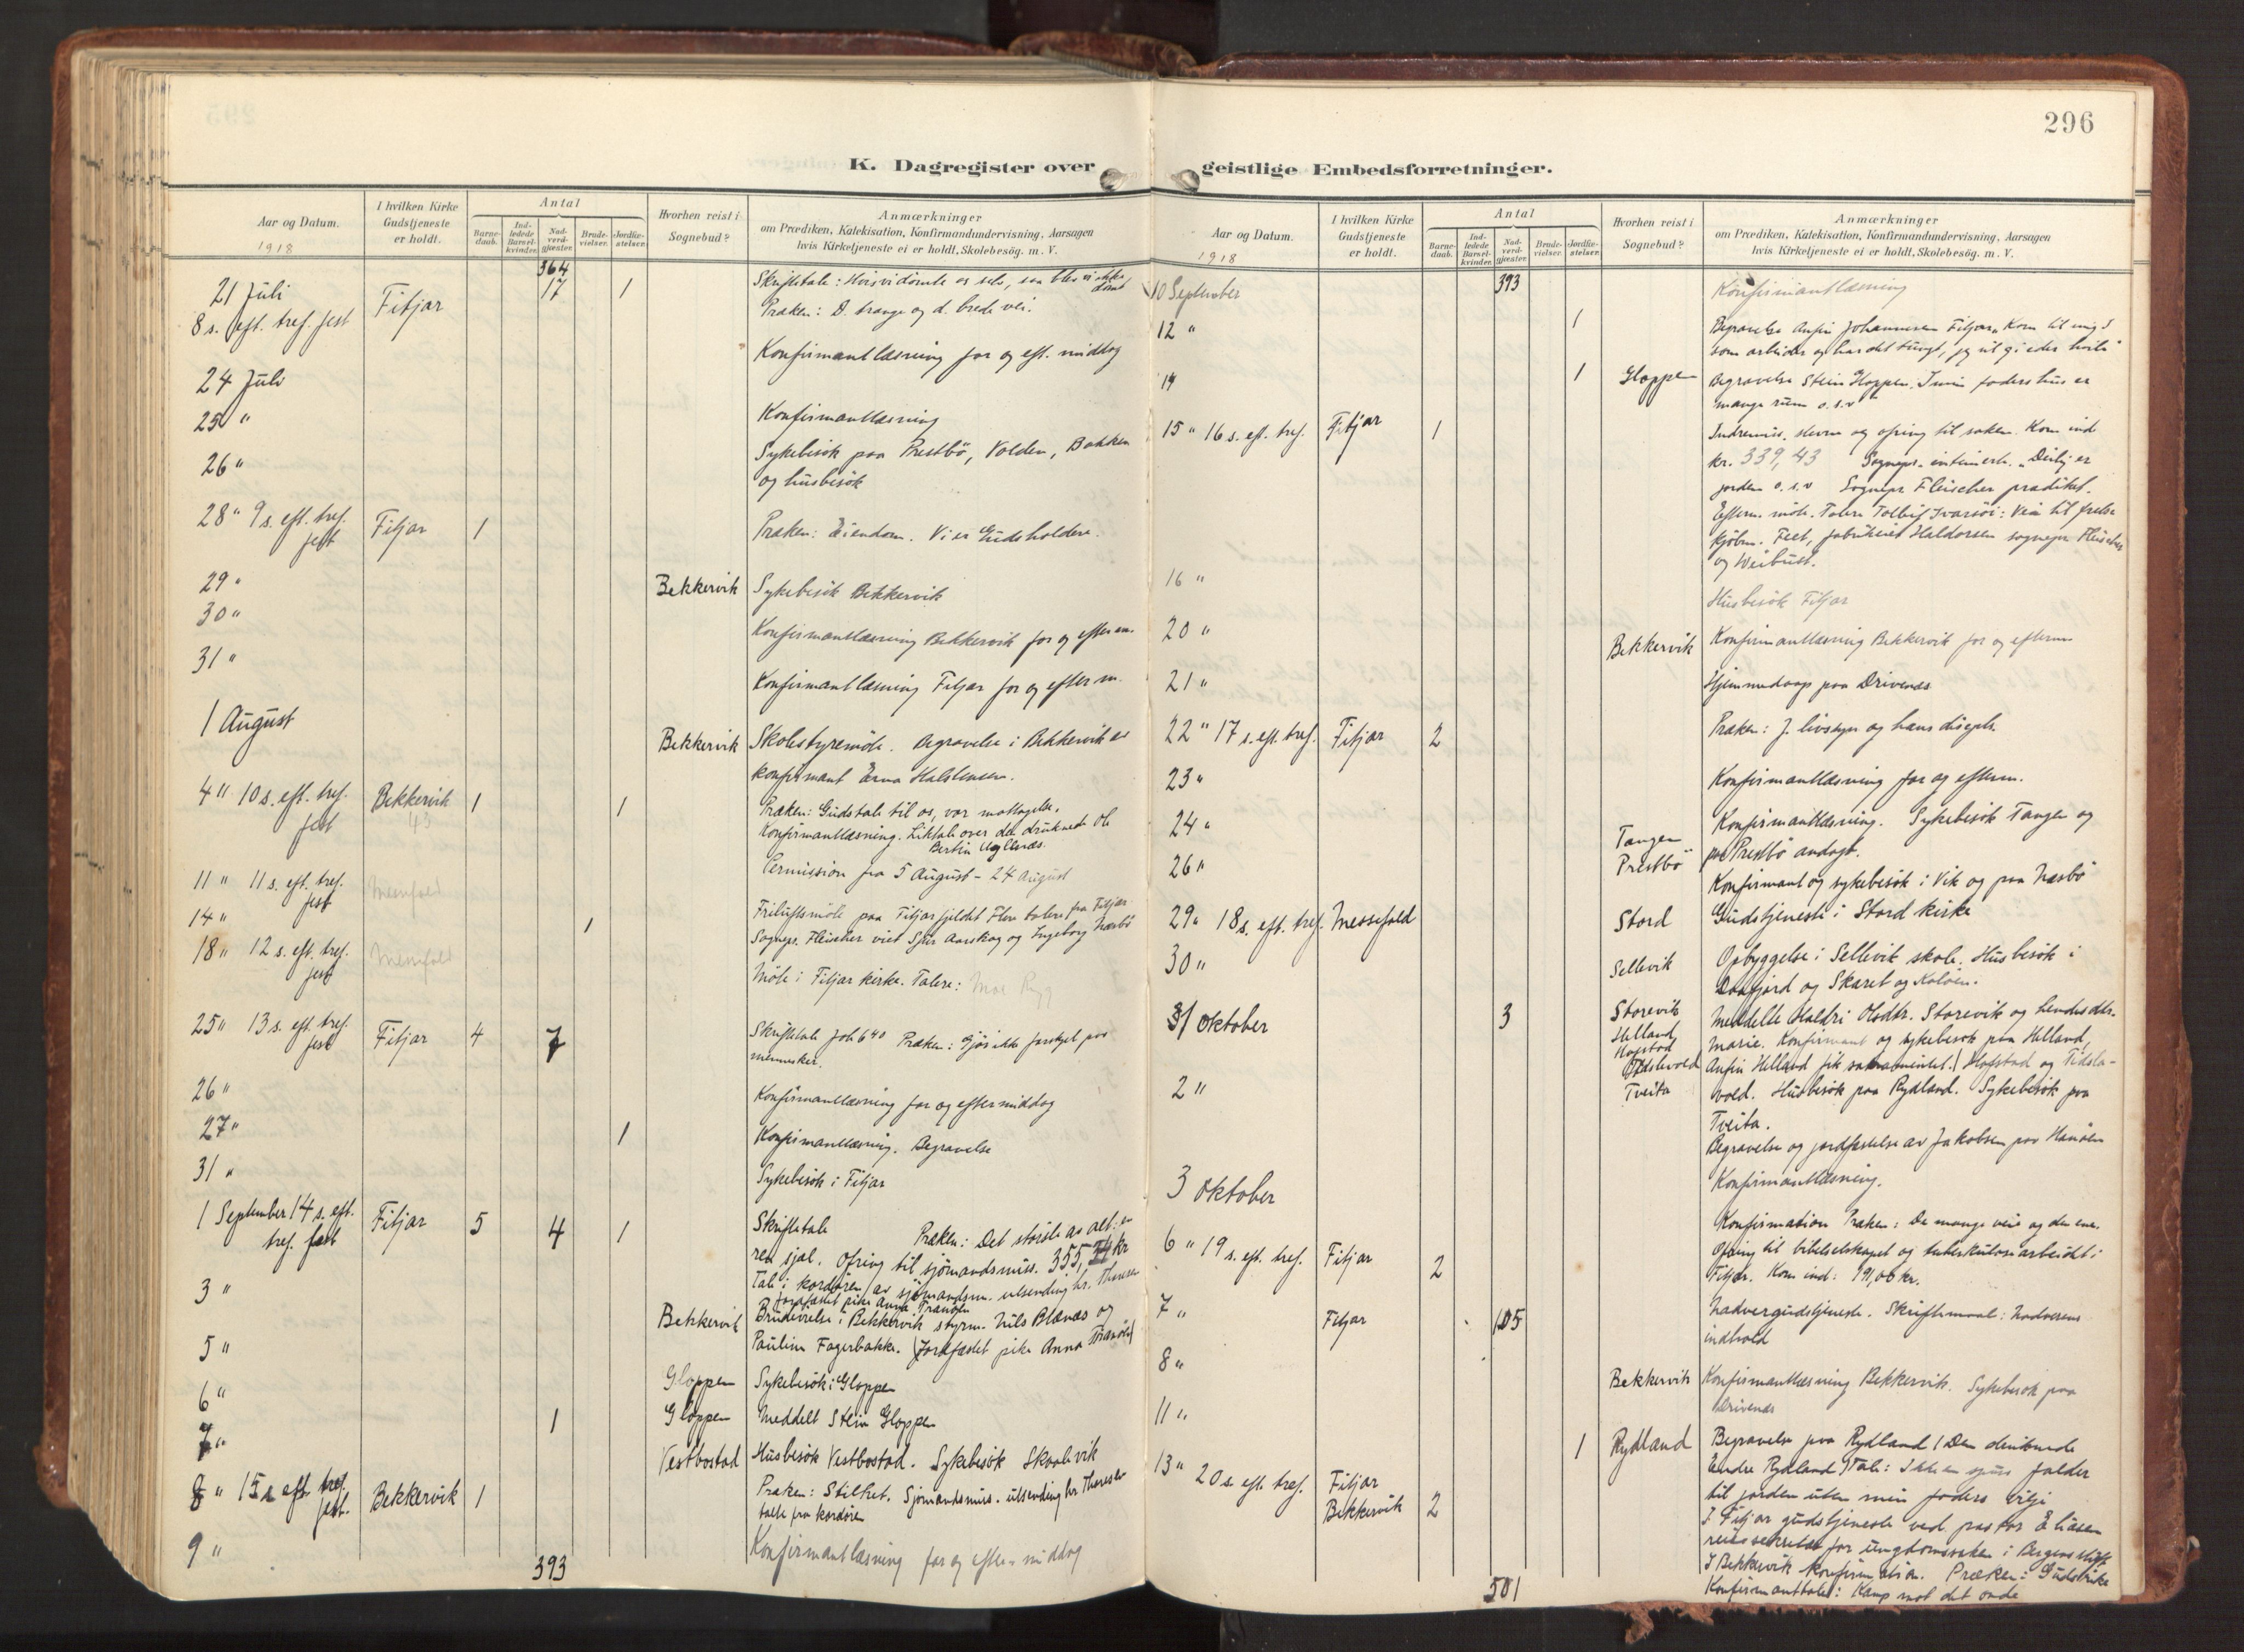 296
K. Dagregister over geistlige Embedsforretninger.
Aar og Datum.
1918
I hvilken Kirke Gudstjeneste er holdt.
Antal
Barnedaab.
Indledede Barselkvinder.
Nadverdgjester.
Brudevielser.
Jordfæstelser.
Hvorhen reist i Sognebud?
Anmærkninger
om Prædiken, Katekisation, Konfirmandundervisning, Aarsagen
hvis Kirketjeneste ei er holdt, Skolebesøg. m. V.
364
21 Juli Fitjar 17 1 Skriftetale: Hvis vi dömte os selv, saa blev vi ikke dömt
8 s. eft. tref. fest Præken: D. trange og d. brede vei.
Konfirmantlæsning for og eft. middag
24 Juli
25 " Konfirmantlæsning
26 " Sykebesök paa Prestbö, Volden, Bakken
og husbesök
28 " 9 s. eft. tref. fest Fitjar 1 Præken: Eiendom. Vi er Guds holdere.
29 " Bekkervik Sykebesök Bekkervik
30 " Konfirmantlæsning Bekkervik for og efterm.
31 " Konfirmantlæsning Fitjar for og efter m.
1 August Bekkervik Skolestyremöte. Begravelse i Bekkervik av
konfirmant Erna Halstensen.
4 " 10 s. eft. tref. fest Bekkervik 1 1 Præken: Guds tale til os, vor mottagelse.
43 Konfirmantlæsning. Liktale over den druknede Ole
Bertin
Permission fra 5 August - 24 August
11 " 11 s. eft. tref. fest Messefald
14 " 1 Friluftsmöte paa Fitjarfjeldet Flere talere fra Fitjar
Sognepr. Fleischer viet Sjur Aarskog og Ingeborg Næsbö
18 " 12 s. eft. tref. fest Messefald
Möte i Fitjar kirke. Talere: Moe
25 " 13 s. eft. tref. fest Fitjar 4 7 Skriftetale Joh 6 40 Præken: Gjör ikke forskjel paa
mennesker.
26 " Konfirmantlæsning for og eftermiddag
27 " 1 Konfirmantlæsning. Begravelse
31 " Sykebesök i Fitjar
1 September 14 s. eft. tref. fest Fitjar 5 4 1 Skriftetale Præken: Det störste av alt: en
ren sjæl. Ofring til sjömandsmiss. 355, kr
Tale i kordören av sjömandsm. utsending hr.
jordfæstet pike Anna Tranöen
3 " Bekkervik Brudevielse i Bekkervik styrm. Nils Blænæs og
5 " Pauline Fagerbakke. (Jordfæstet pike Anna Tranöen)
6 " Gloppen Sykebesök i Gloppen
7 " 1 Gloppen Meddelt Stein Gloppen
Vestbostad Husbesök Vestbostad. Sykebesök Skaalevik
8 " 15 s eft. tref. fest. Bekkervik 1 Præken: Stilhet. Sjömandsmiss. utsending hr
talte fra kordören
9 " Konfirmantlæsning for og efter-middag
393
Aar og Datum.
1918
I hvilken Kirke Gudstjeneste er holdt.
Antal
Barnedaab.
Indledede Barselkvinder.
Nadverdgjester.
Brudevielser.
Jordfæstelser.
Hvorhen reist i Sognebud?
Anmærkninger
om Prædiken, Katekisation, Konfirmandundervisning, Aarsagen
hvis Kirketjeneste ei er holdt, Skolebesøg. m. V.
10 September 393 Konfirmantlæsning
12 " 1 Begravelse Anfin Johannesen Fitjar. "Kom til mig I
som arbeider og har det tungt, jeg vil gi eder hvile"
14 1 Gloppen Begravelse Stein Gloppen. I min faders hus er
mange rum o.s.v
15 " 16 s. eft. tref. Fitjar 1 Indremis. stevne og ofring til saken. Kom ind
kr. 339,43 Sognepr. "Deilig er
jorden o.s.v Sognepr. Fleischer prædiket.
Efterm. möte. Talere : Vei til frelse
Kjöbm. fabrikeier Haldorsen sognepr. Fleischer
og
16 " Husbesök Fitjar
20 " Bekkervik Konfirmantlæsning Bekkervik for og efterm
21 " Hjemmedaap paa Drivenes
22 " 17 s. eft. tref. Fitjar 2 Præken: J. livssyn og hans disipls.
23 " Konfirmantlæsning for og efterm.
24 " Tangen Konfirmantlæsning. Sykebesök Tangen og
Prestbö paa Prestbö andagt.
26 " Konfirmant og sykebesök i Vik og paa Næsbö
29 " 18 s. eft. tref. Messefald Stord Gudstjeneste i Stord kirke
30 " Sellevik Opbyggelse i Sellevik skole. Husbesök i
Daafjord og Skaret og Kalöen.
1 Oktober 3 Storevik Meddelte Olsdtr. Storevik og hendes dtr.
Helland Marie. Konfirmant og sykebesök paa Helland,
Hofstad Anfin Helland fik sakramentet. Hofstad og
2 " Tveita vold. Husbesök paa Rydland. Sykebesök paa
Tveita.
Begravelse og jordfæstelse av Jakobsen paa
3 Oktober Konfirmantlæsning.
6 " 19 s. eft. tref. Fitjar 2 Konfirmation Præken: De mange veie og den ene.
Ofring til bibelselskapet og tuberkulosearbeidet i
Fitjar. Kom ind: 191,06 kr.
7 " Fitjar 105 Nadvergudstjeneste. Skriftemaal: Nadverens
indhold
8 " Bekkervik Konfirmantlæsning Bekkervik. Sykebesök paa
Drivenes
11 " 1 Rydland Begravelse paa Rydland (Den druknede
Endre Rydland) Tale: Ikke en spurv falder
til jorden uten min faders vilje
13 " 20 s. eft. tref. Fitjar I Fitjar gudstjeneste ved pastor Eliasen
Bekkervik 2 reisesekretær for ungdomssaken i Bergens stift
I Bekkervik konfirmation. Præken: Guds rike
Konfirmanttale: Kamp mot det onde
501